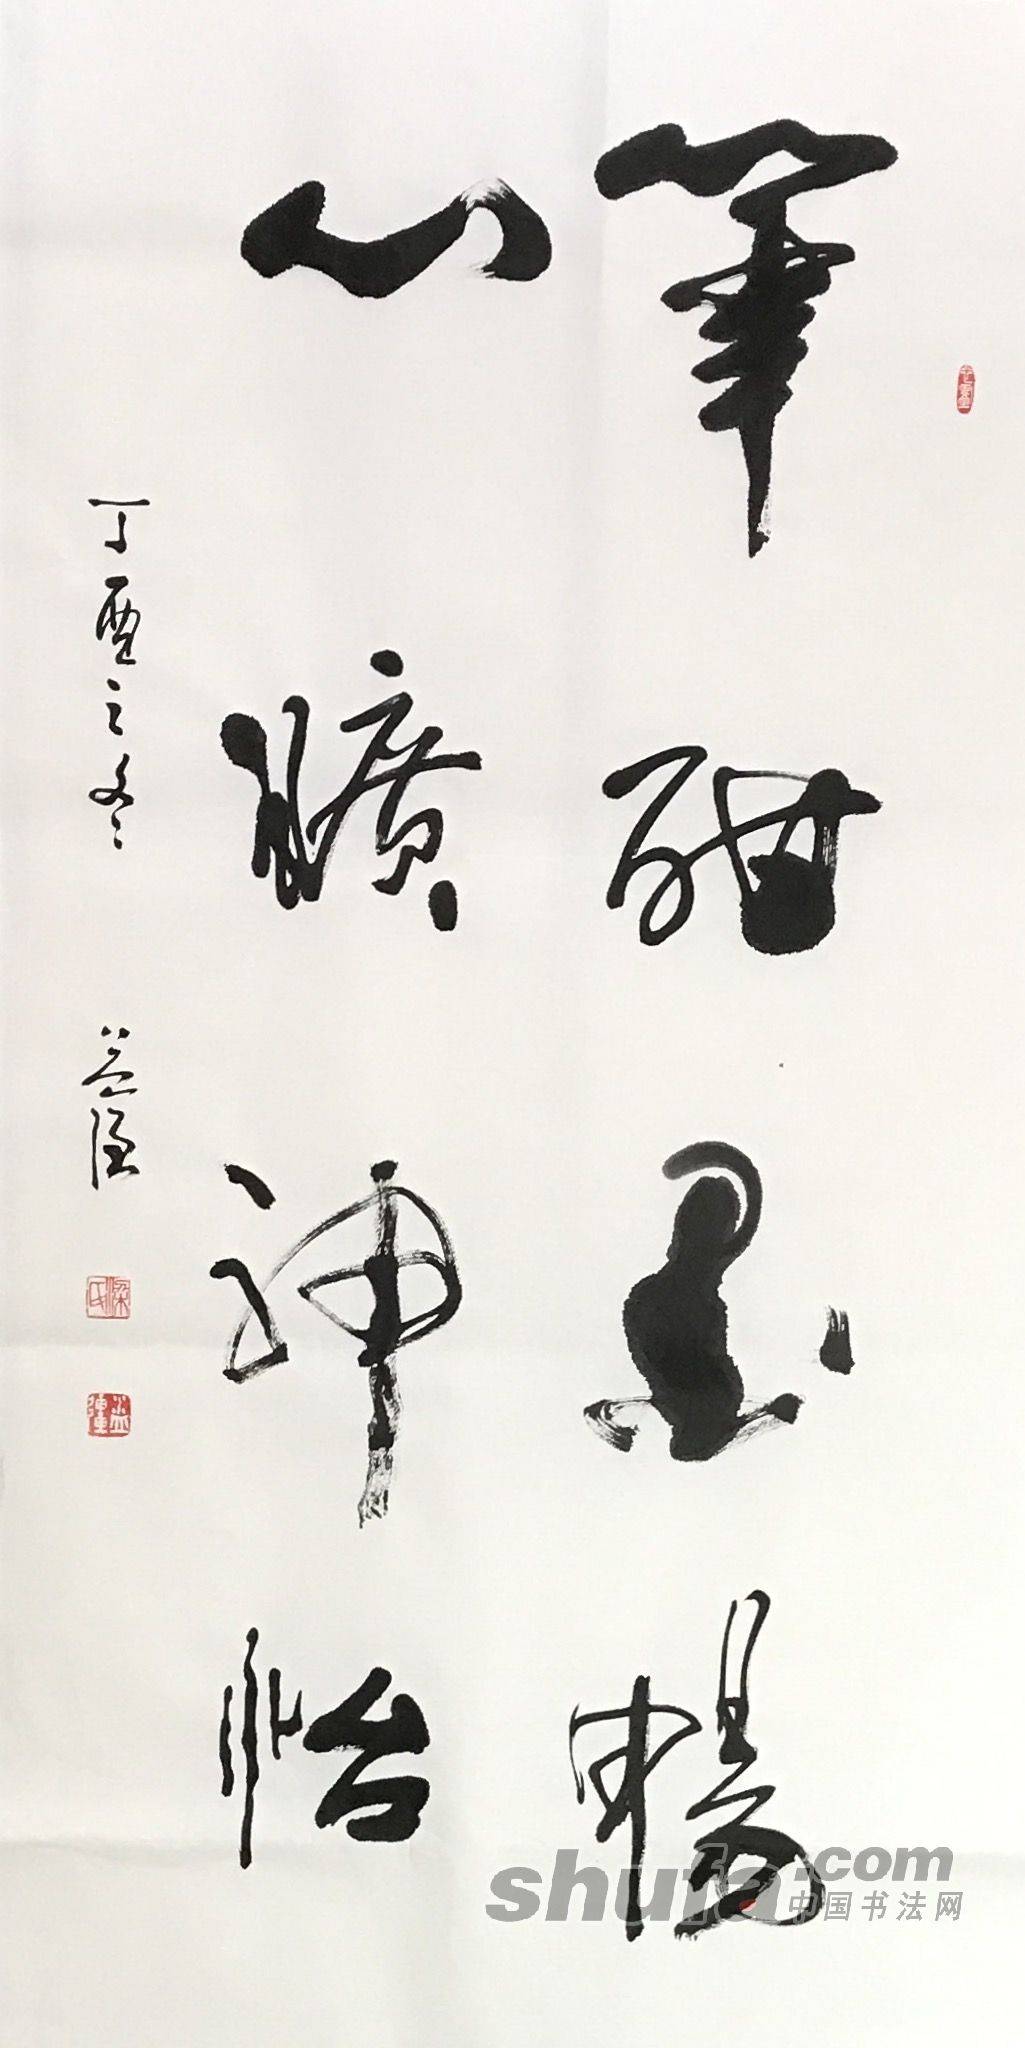 筆酣墨暢
心曠神怡
丁酉之冬 益僅
梁氏
shufa.com
中国书法网